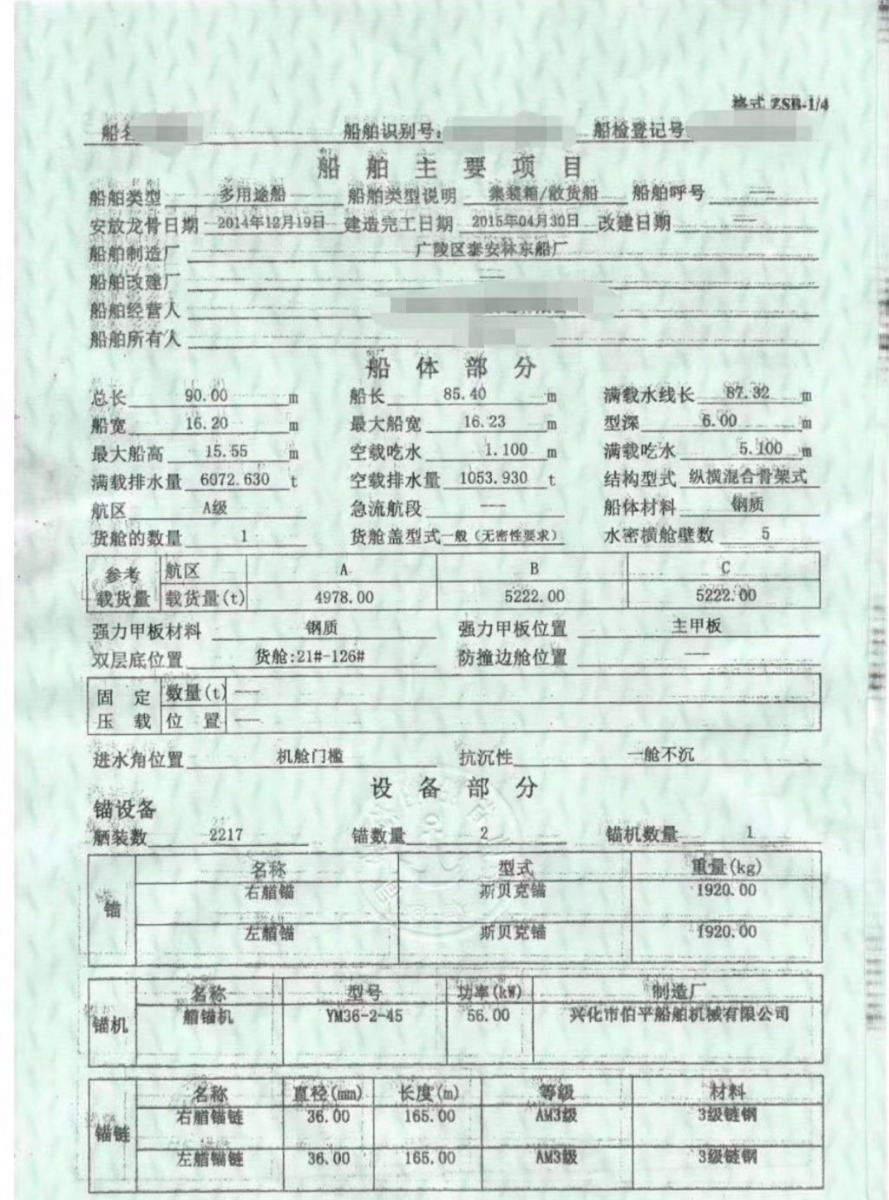 格式 ZSB-1/4
船名 船舶识别号: 船检登记号
船舶主要项目
船舶类型 多用途船 船舶类型说明 集装箱/散货船 船舶呼号 ---
安放龙骨日期 2014年12月19日 建造完工日期 2015年04月30日 改建日期 ---
船舶制造厂 广陵区泰安林东船厂
船舶改建厂 ---
船舶经营人
船舶所有人
船体部分
总长 90.00 m 船长 85.40 m 满载水线长 87.32 m
船宽 16.20 m 最大船宽 16.23 m 型深 6.00 m
最大船高 15.55 m 空载吃水 1.100 m 满载吃水 5.100 m
满载排水量 6072.630 t 空载排水量 1053.930 t 结构型式 纵横混合骨架式
航区 A级 急流航段 --- 船体材料 钢质
货舱的数量 1 货舱盖型式 一般(无密性要求) 水密横舱壁数 5
参考 航区 A B C
载货量 载货量(t) 4978.00 5222.00 5222.00
强力甲板材料 钢质 强力甲板位置 主甲板
双层底位置 货舱:21#-126# 防撞边舱位置 ---
固定 数量(t) ---
压载 位置 ---
进水角位置 机舱门槛 抗沉性 一舱不沉
设备部分
锚设备
舾装数 2217 锚数量 2 锚机数量 1
名称 型式 重量(kg)
右艏锚 斯贝克锚 1920.00
锚
左艏锚 斯贝克锚 1920.00
名称 型号 功率(kW) 制造厂
锚机 艏锚机 YM36-2-45 56.00 兴化市伯平船舶机械有限公司
名称 直径(mm) 长度(m) 等级 材料
右艏锚链 36.00 165.00 AM3级 3级链钢
锚链
左艏锚链 36.00 165.00 AM3级 3级链钢